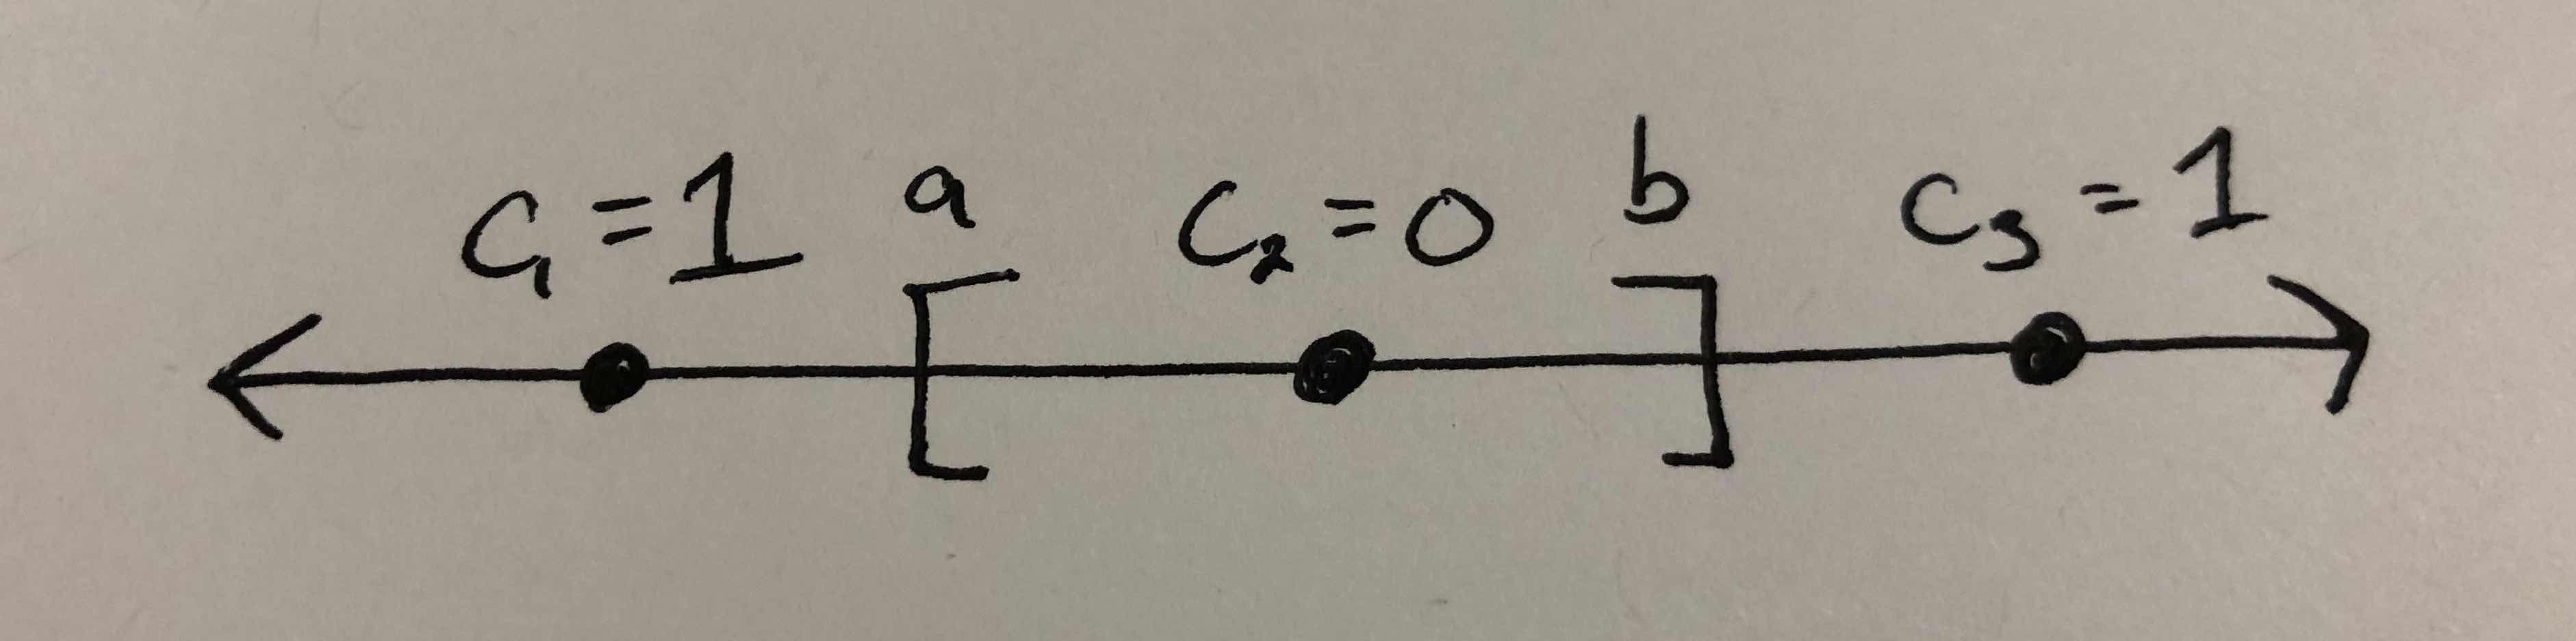 C₁ = 1 a C₂ = 0 b C₃ = 1
[ ]